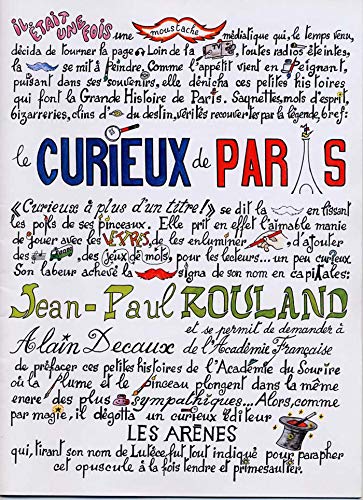 IL ÉTAIT UNE FOIS une moustache médiatique qui, le temps venu,
décida de tourner la page. Loin de la , toutes radios éteintes,
la se mit à peindre. Comme l'appétit vient en peignant,
puisant dans ses souvenirs, elle dénicha ces petites histoires
qui font la Grande Histoire de Paris. Saynettes, mots d'esprit,
bizarreries, clins d' du destin, vérités recouvertes par la légende, bref:
le CURIEUX de PARIS
«Curieuse à plus d'un titre!» se dit la en lissant
les poils de ses pinceaux. Elle prit en effet l'aimable manie
de jouer avec les LETTRES, de les enluminer , d'ajouter
des , des jeux de mots, pour les lecteurs... un peu curieux.
Son labeur achevé la signa de son nom en capitales:
Jean-Paul ROULAND
et se permit de demander à
Alain Decaux de l'Académie Française
de préfacer ces petites histoires de l'Académie du Sourire
où la plume et le pinceau plongent dans la même
encre des plus sympathiques... Alors, comme
par magie, il dégotta un curieux éditeur
LES ARÈNES
qui, tirant son nom de Lutèce, fut tout indiqué pour parapher
cet opuscule à la fois tendre et primesautier.